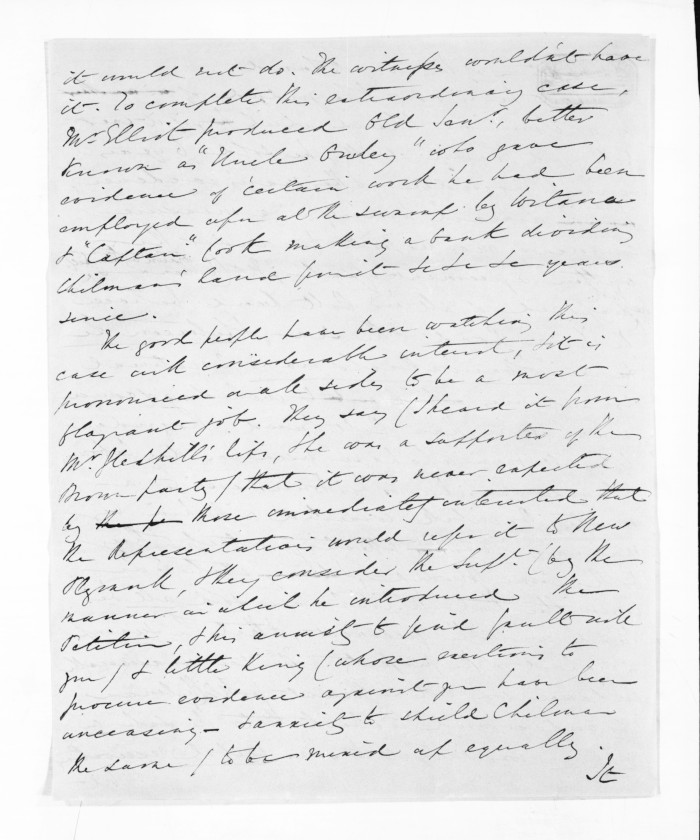 it would not do. The witness wouldn't have
it. To complete this extraordinary case,
Mr Elliot produced Old Sant., better
known as "Uncle Oxley" who gave
evidence of certain work he had been
employed upon at the swamp by
& "Captain" Cook making a bank dividing
Chilman's land from it &c &c &c years
since.
The good people have been watching this
case with considerable interest, & it is
pronounced on all sides to be a most
flagrant job. They say (I heard it from
Mr. lips, & he was a supporter of the
Brown party) that it was never expected
by the pe those immediately interested that
the Representatives would refer it to New
Plymouth, & they consider the Supt. (by the
manner in which he introduced the
Petition, & his anxiety to find fault with
you) & little King (whose exertions to
procure evidence against you have been
unceasing - & anxiety to shield Chilman
the same) to be mixed up equally.
It